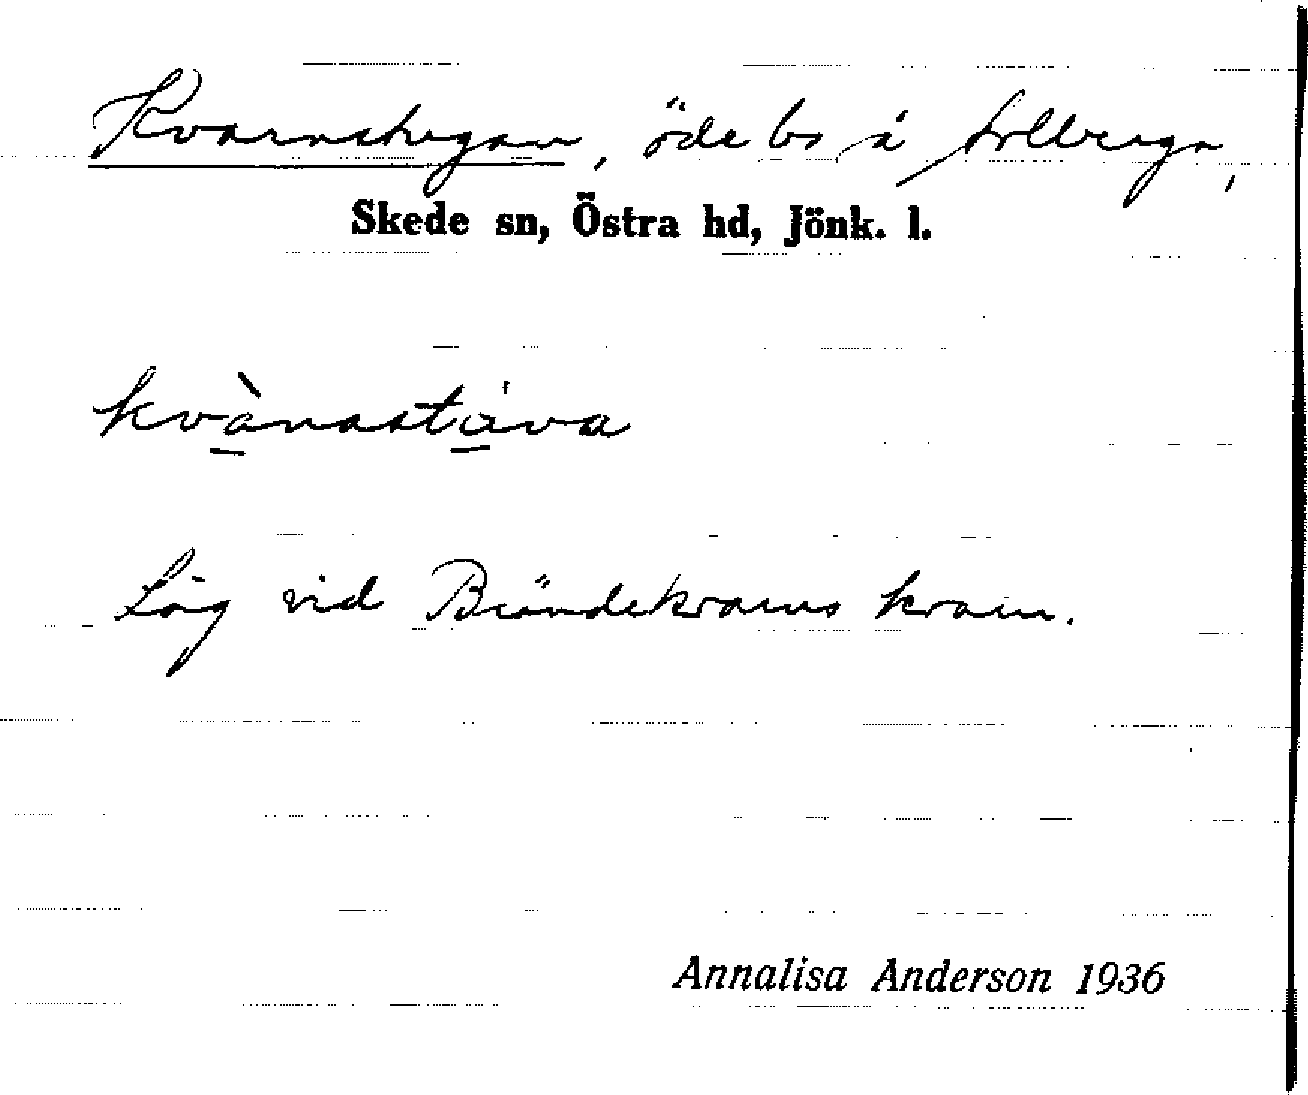 Kvarnstugan, öde bs, å Solberga,
Skede sn, Östra hd, Jönk. l.
kvànastáva
Låg vid kvarn.
Annalisa Anderson 1936